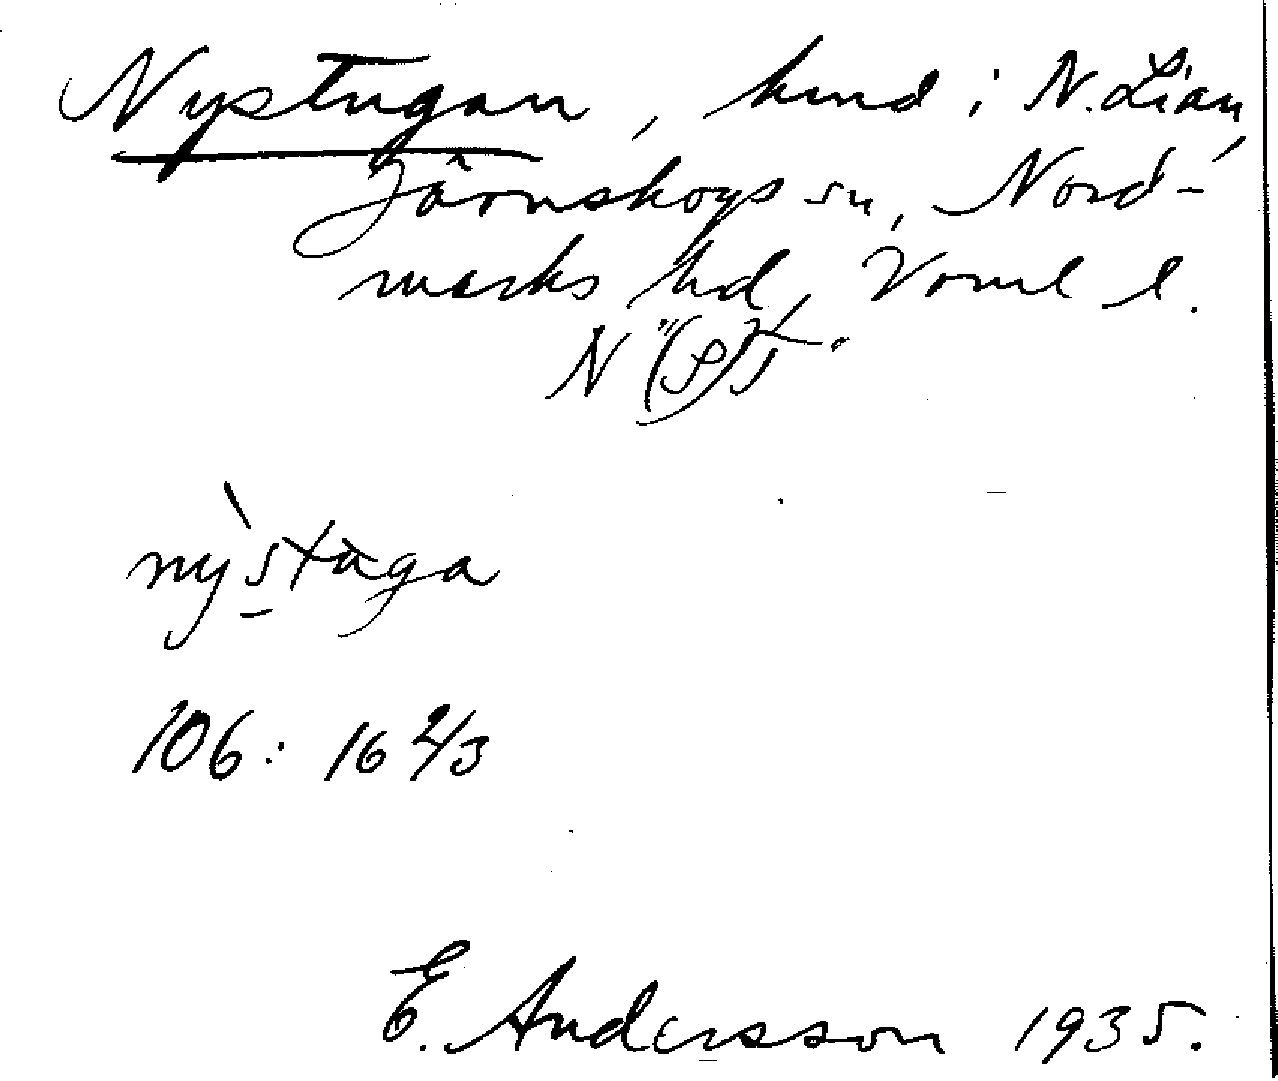 Nystugan, hmd i N. Lian,
Järnskogs sn, Nord-
marks hd, Vrml l.
nystuga
106: 16 2/3
E. Andersson 1935.